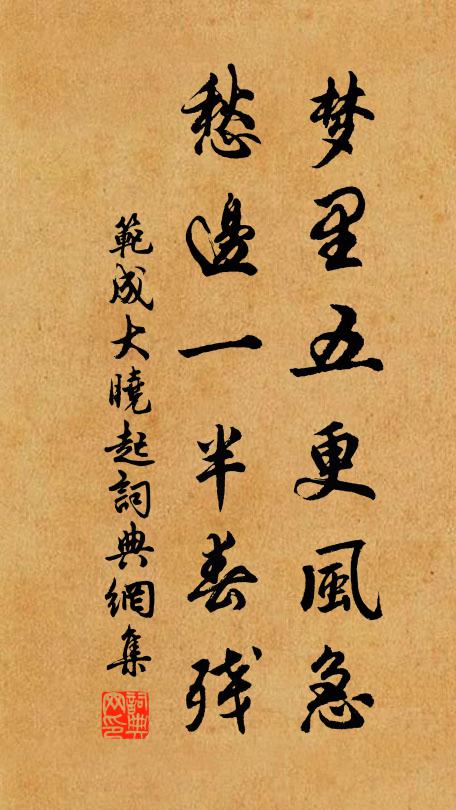 梦里五更風急
愁邊一半春残
範成大曉起詞典網集
詞典網印